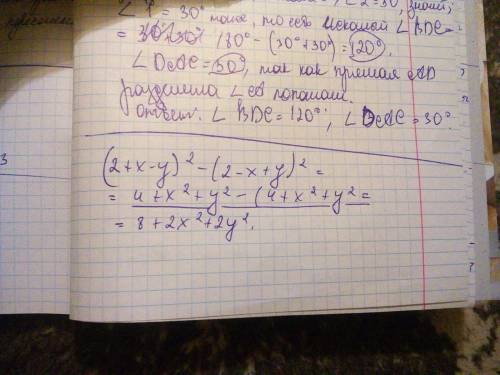 ∠ 1 = 30° тоже, то есть искомый ∠ BDC =
= 180° - (30° + 30°) = 120°.
∠ DAC = 30°, так как прямая AD
разделила ∠ A пополам.
Ответ: ∠ BDC = 120°; ∠ DAC = 30°.
(2+x-y)² - (2-x+y)² =
= 4 + x² + y² - (4 + x² + y² =
= 8 + 2x² + 2y².
3